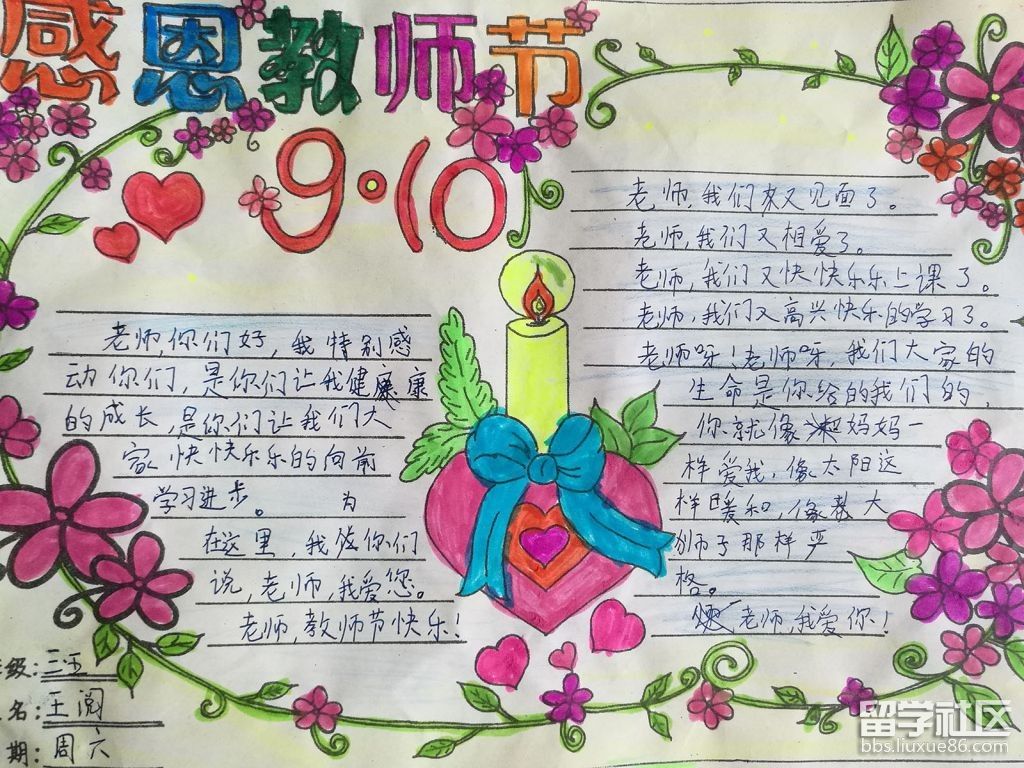 感恩教师节
9·10
老师,你们好,我特别感
动你们,是你们让我健康康
的成长,是你们让我们大
家快快乐乐的向前
学习进步。为
在这里,我你们
说,老师,我爱您。
老师,教师节快乐!
老师,我们来又见面了。
老师,我们又相爱了。
老师,我们又快快乐乐上课了。
老师,我们又高兴快乐的学习了。
老师呀!老师呀,我们大家的
生命是你给的我们的,
你就像妈妈一
样爱我,像太阳这
样暖和,像大
狮子那样严
格。
老师,我爱你!
级:三五
名:王阅
期:周六
留学社区
bbs.liuxue86.com